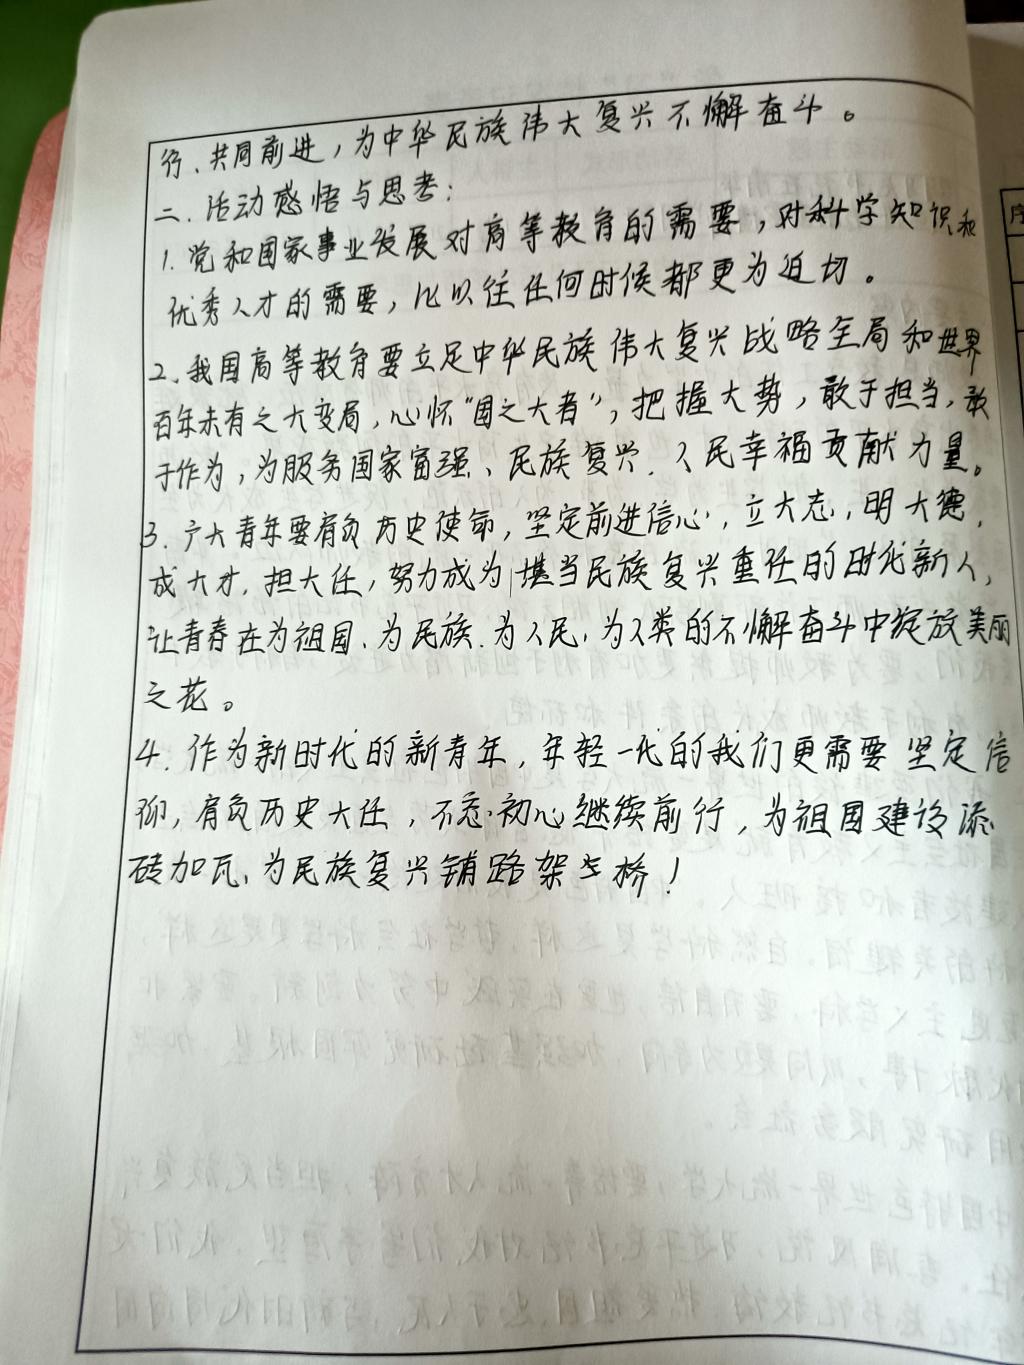 行、共同前进，为中华民族伟大复兴不懈奋斗。
二、活动感悟与思考：
1. 党和国家事业发展对高等教育的需要，对科学知识和
优秀人才的需要，比以往任何时候都更为迫切。
2、我国高等教育要立足中华民族伟大复兴战略全局和世界
百年未有之大变局，心怀“国之大者”，把握大势，敢于担当，敢
于作为，为服务国家富强、民族复兴、人民幸福贡献力量。
3. 广大青年要肩负历史使命，坚定前进信心，立大志，明大德，
成大才，担大任，努力成为堪当民族复兴重任的时代新人，
让青春在为祖国、为民族、为人民、为人类的不懈奋斗中绽放美丽
之花。
4. 作为新时代的新青年，年轻一代的我们更需要坚定信
仰，肩负历史大任，不忘初心继续前行，为祖国建设添
砖加瓦、为民族复兴铺路架桥！
序